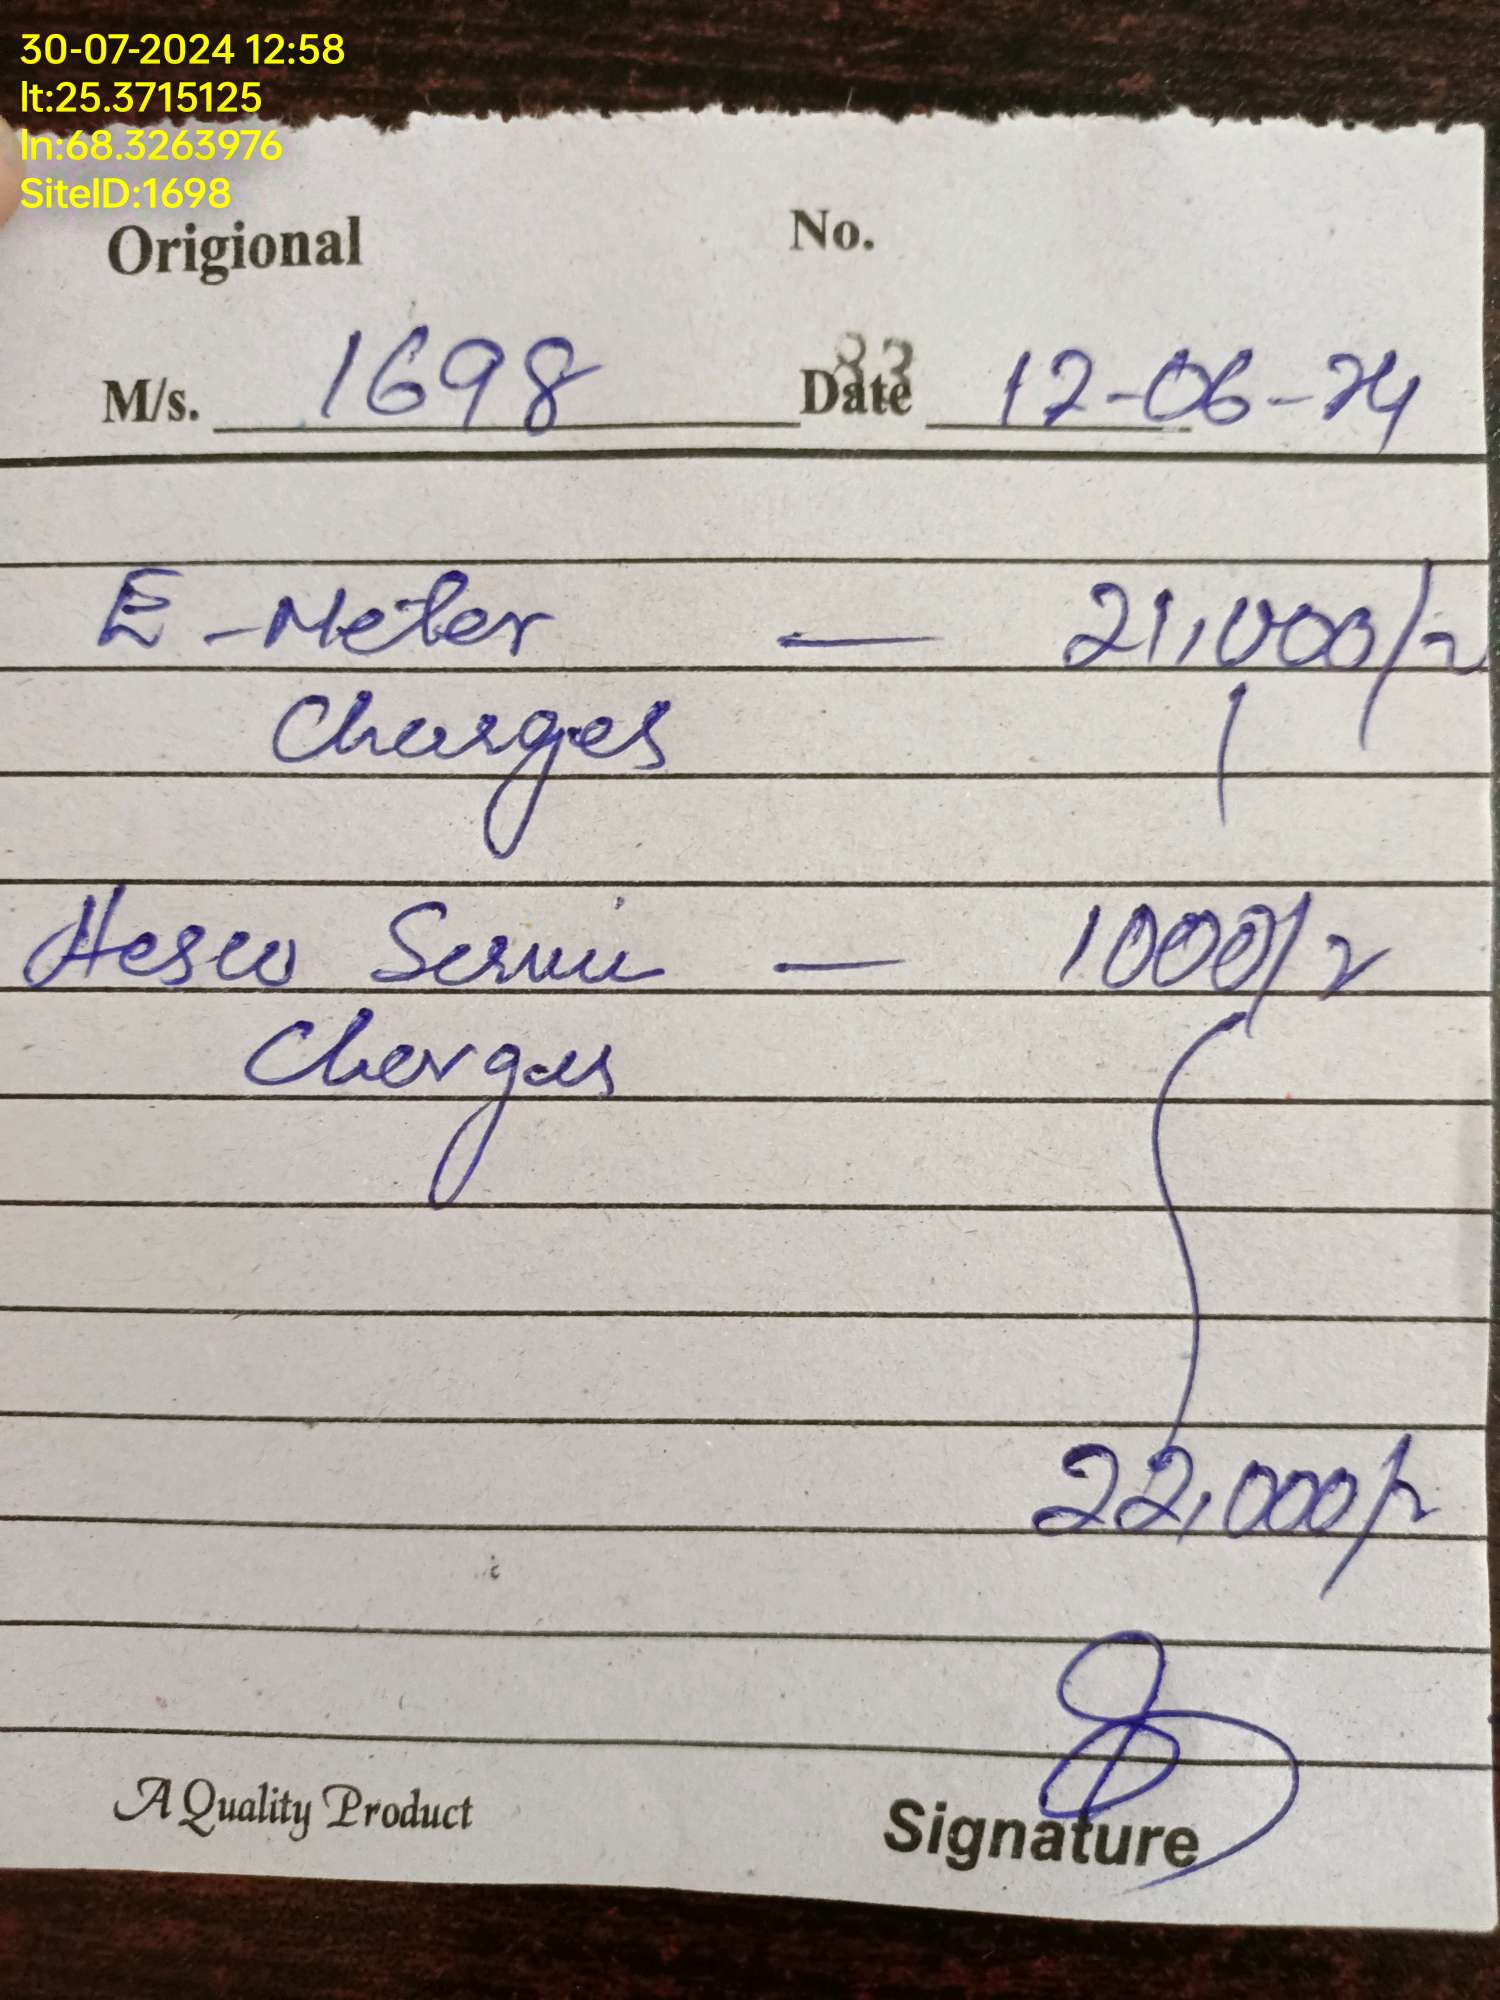 30-07-2024 12:58
lt:25.3715125
ln:68.3263976
SiteID:1698
Origional No.
83
M/s. 1698 Date 12-06-24
E-Meter — 21,000/-
Charges
Hesco Servic — 1000/-
Charges
22,000/-
A Quality Product Signature